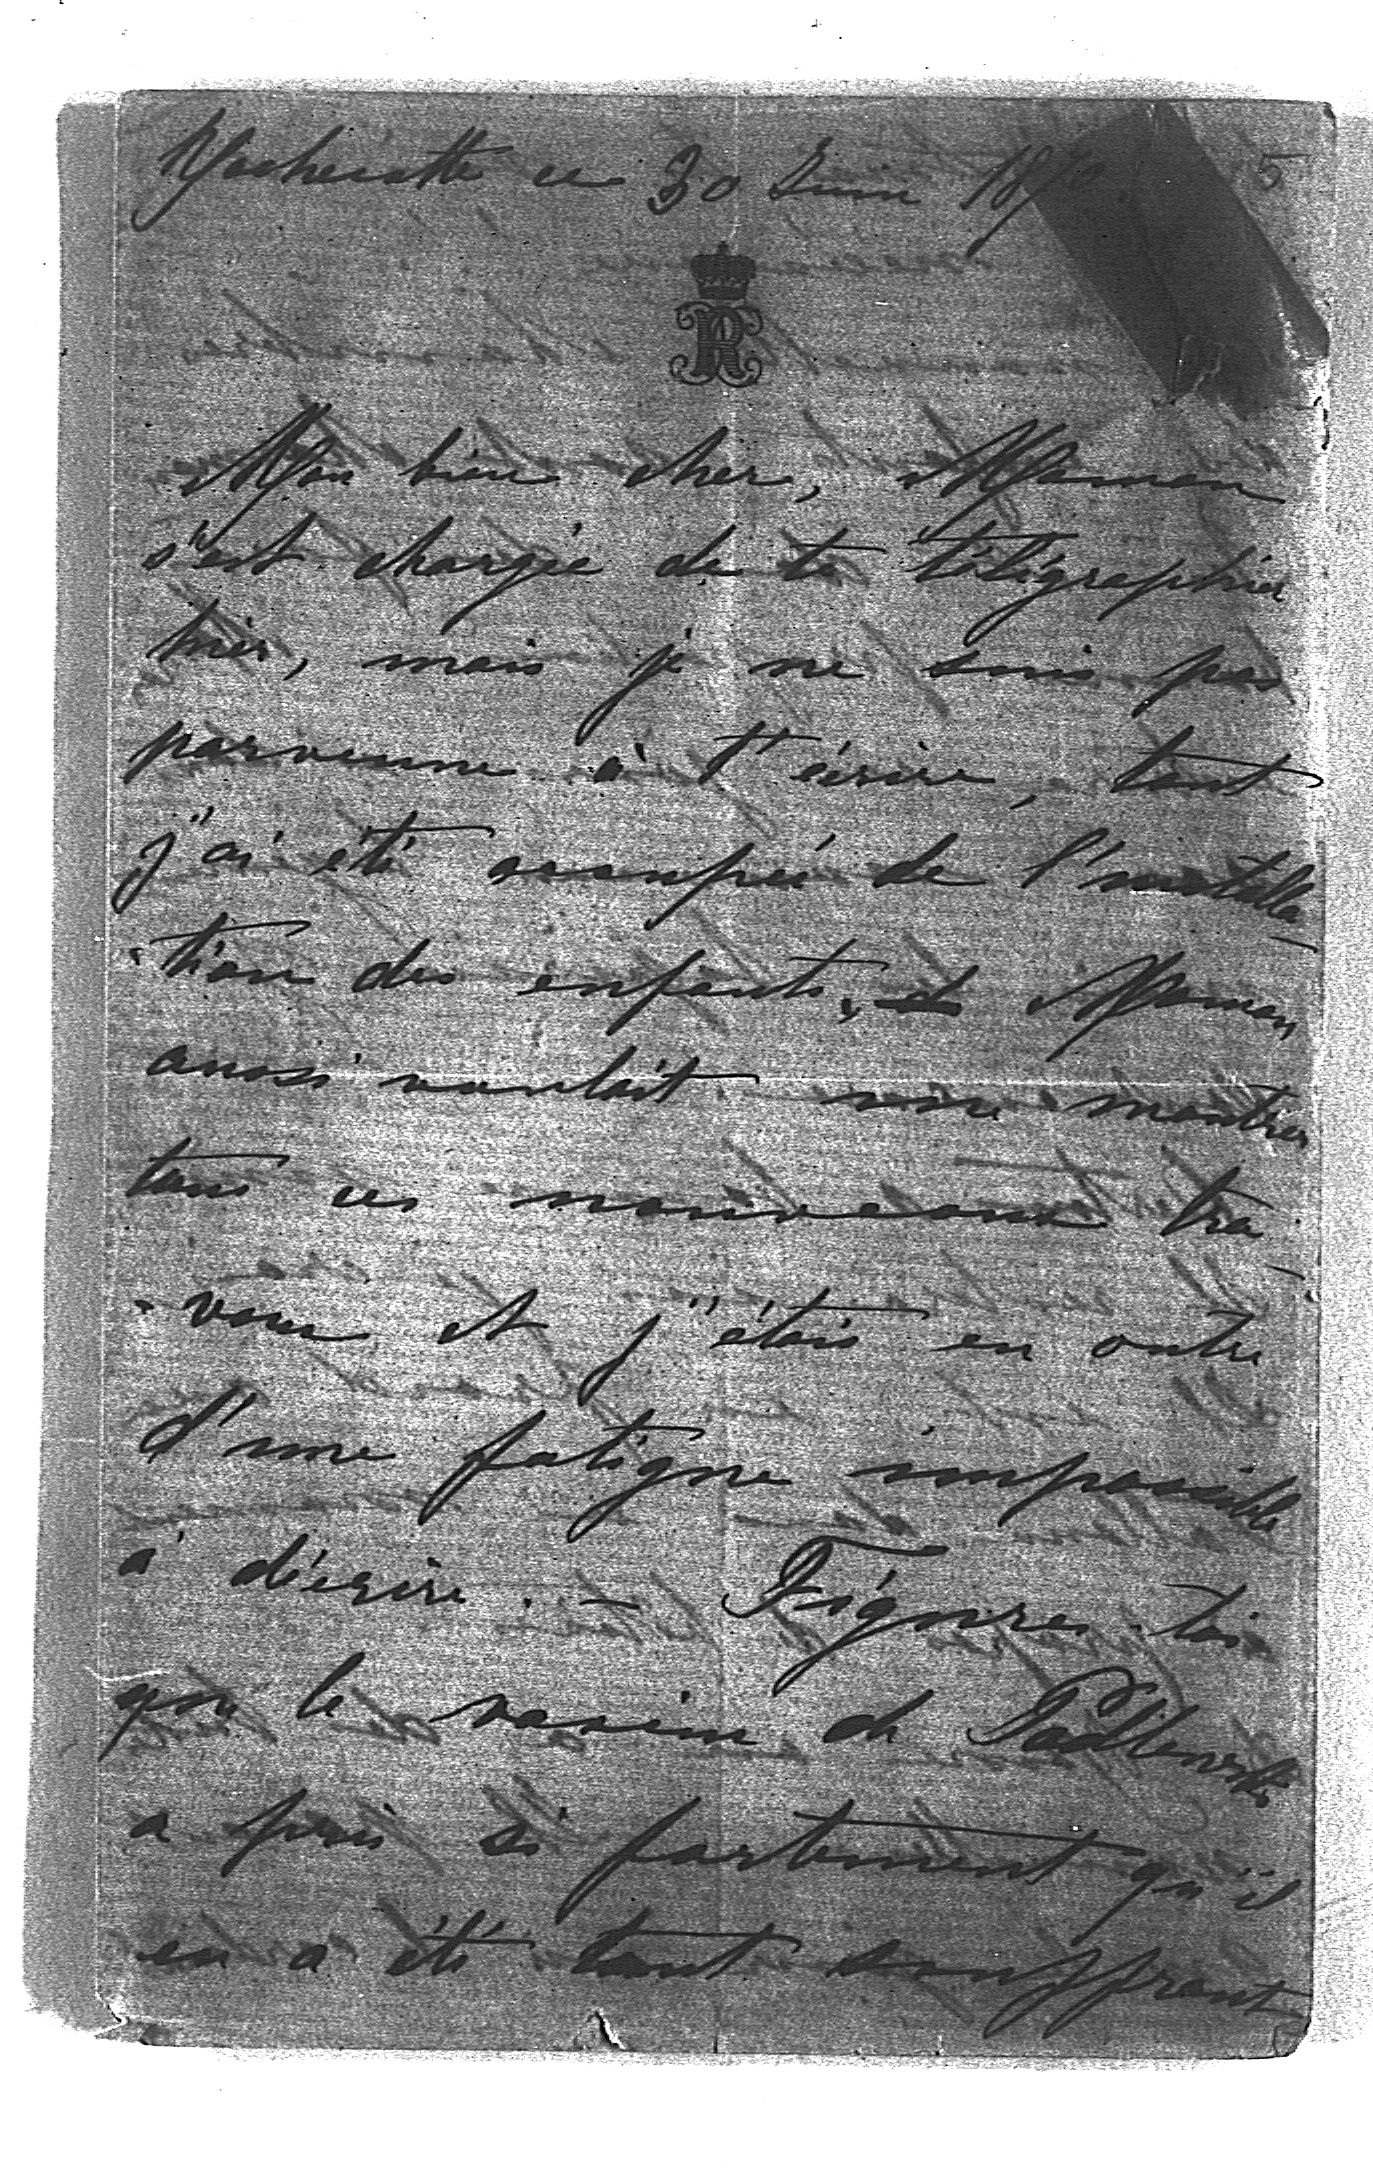 ce 30 Juin 18
5
R
Mon bien cher, Maman
s'est chargée de te télégraphier
hier, mais je ne suis pas
parvenue à t'écrire, tant
j'ai été occupée de l'installa-
-tion des enfants, et Maman
aussi voulait me montrer
tous ces nouveaux tra-
-vaux et j'étais en outre
d'une fatigue impossible
à décrire. – Figures-toi
que le vaccin de
a pris si fortement qu'il
en a été tout souffrant